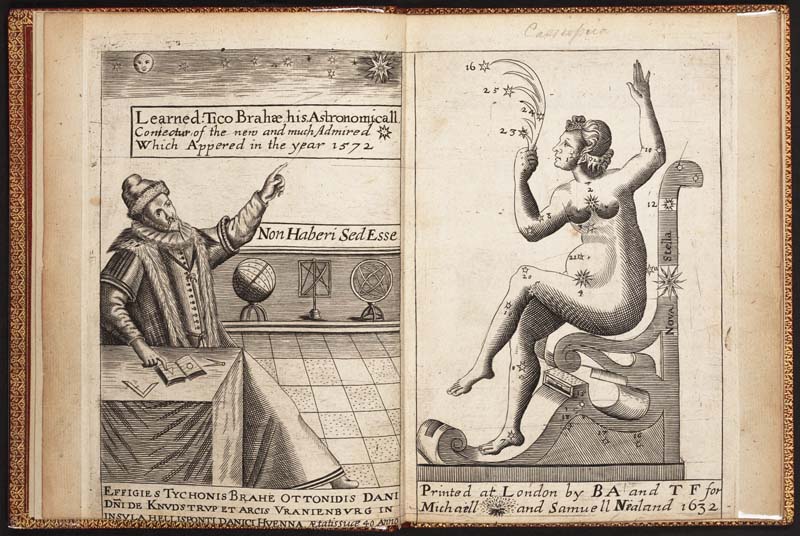 Learned: Tico Brahæ, his Astronomicall
Coniectur, of the new and much Admired
Which Appered in the year 1572
Non Haberi Sed Esse
EFFIGIES TYCHONIS BRAHE OTTONIDIS DANI
DÑI DE KNVDSTRVP ET ARCIS VRANIENBVRG IN
INSVLA HELLISPONTI DANICI HVENNA Ætatis suæ 40 Anno
Cassiopeia
16
25
23
2
12
10
Nova Stella
21
20
4
Printed at London by BA and TF for
Michaell and Samuell Nealand 1632